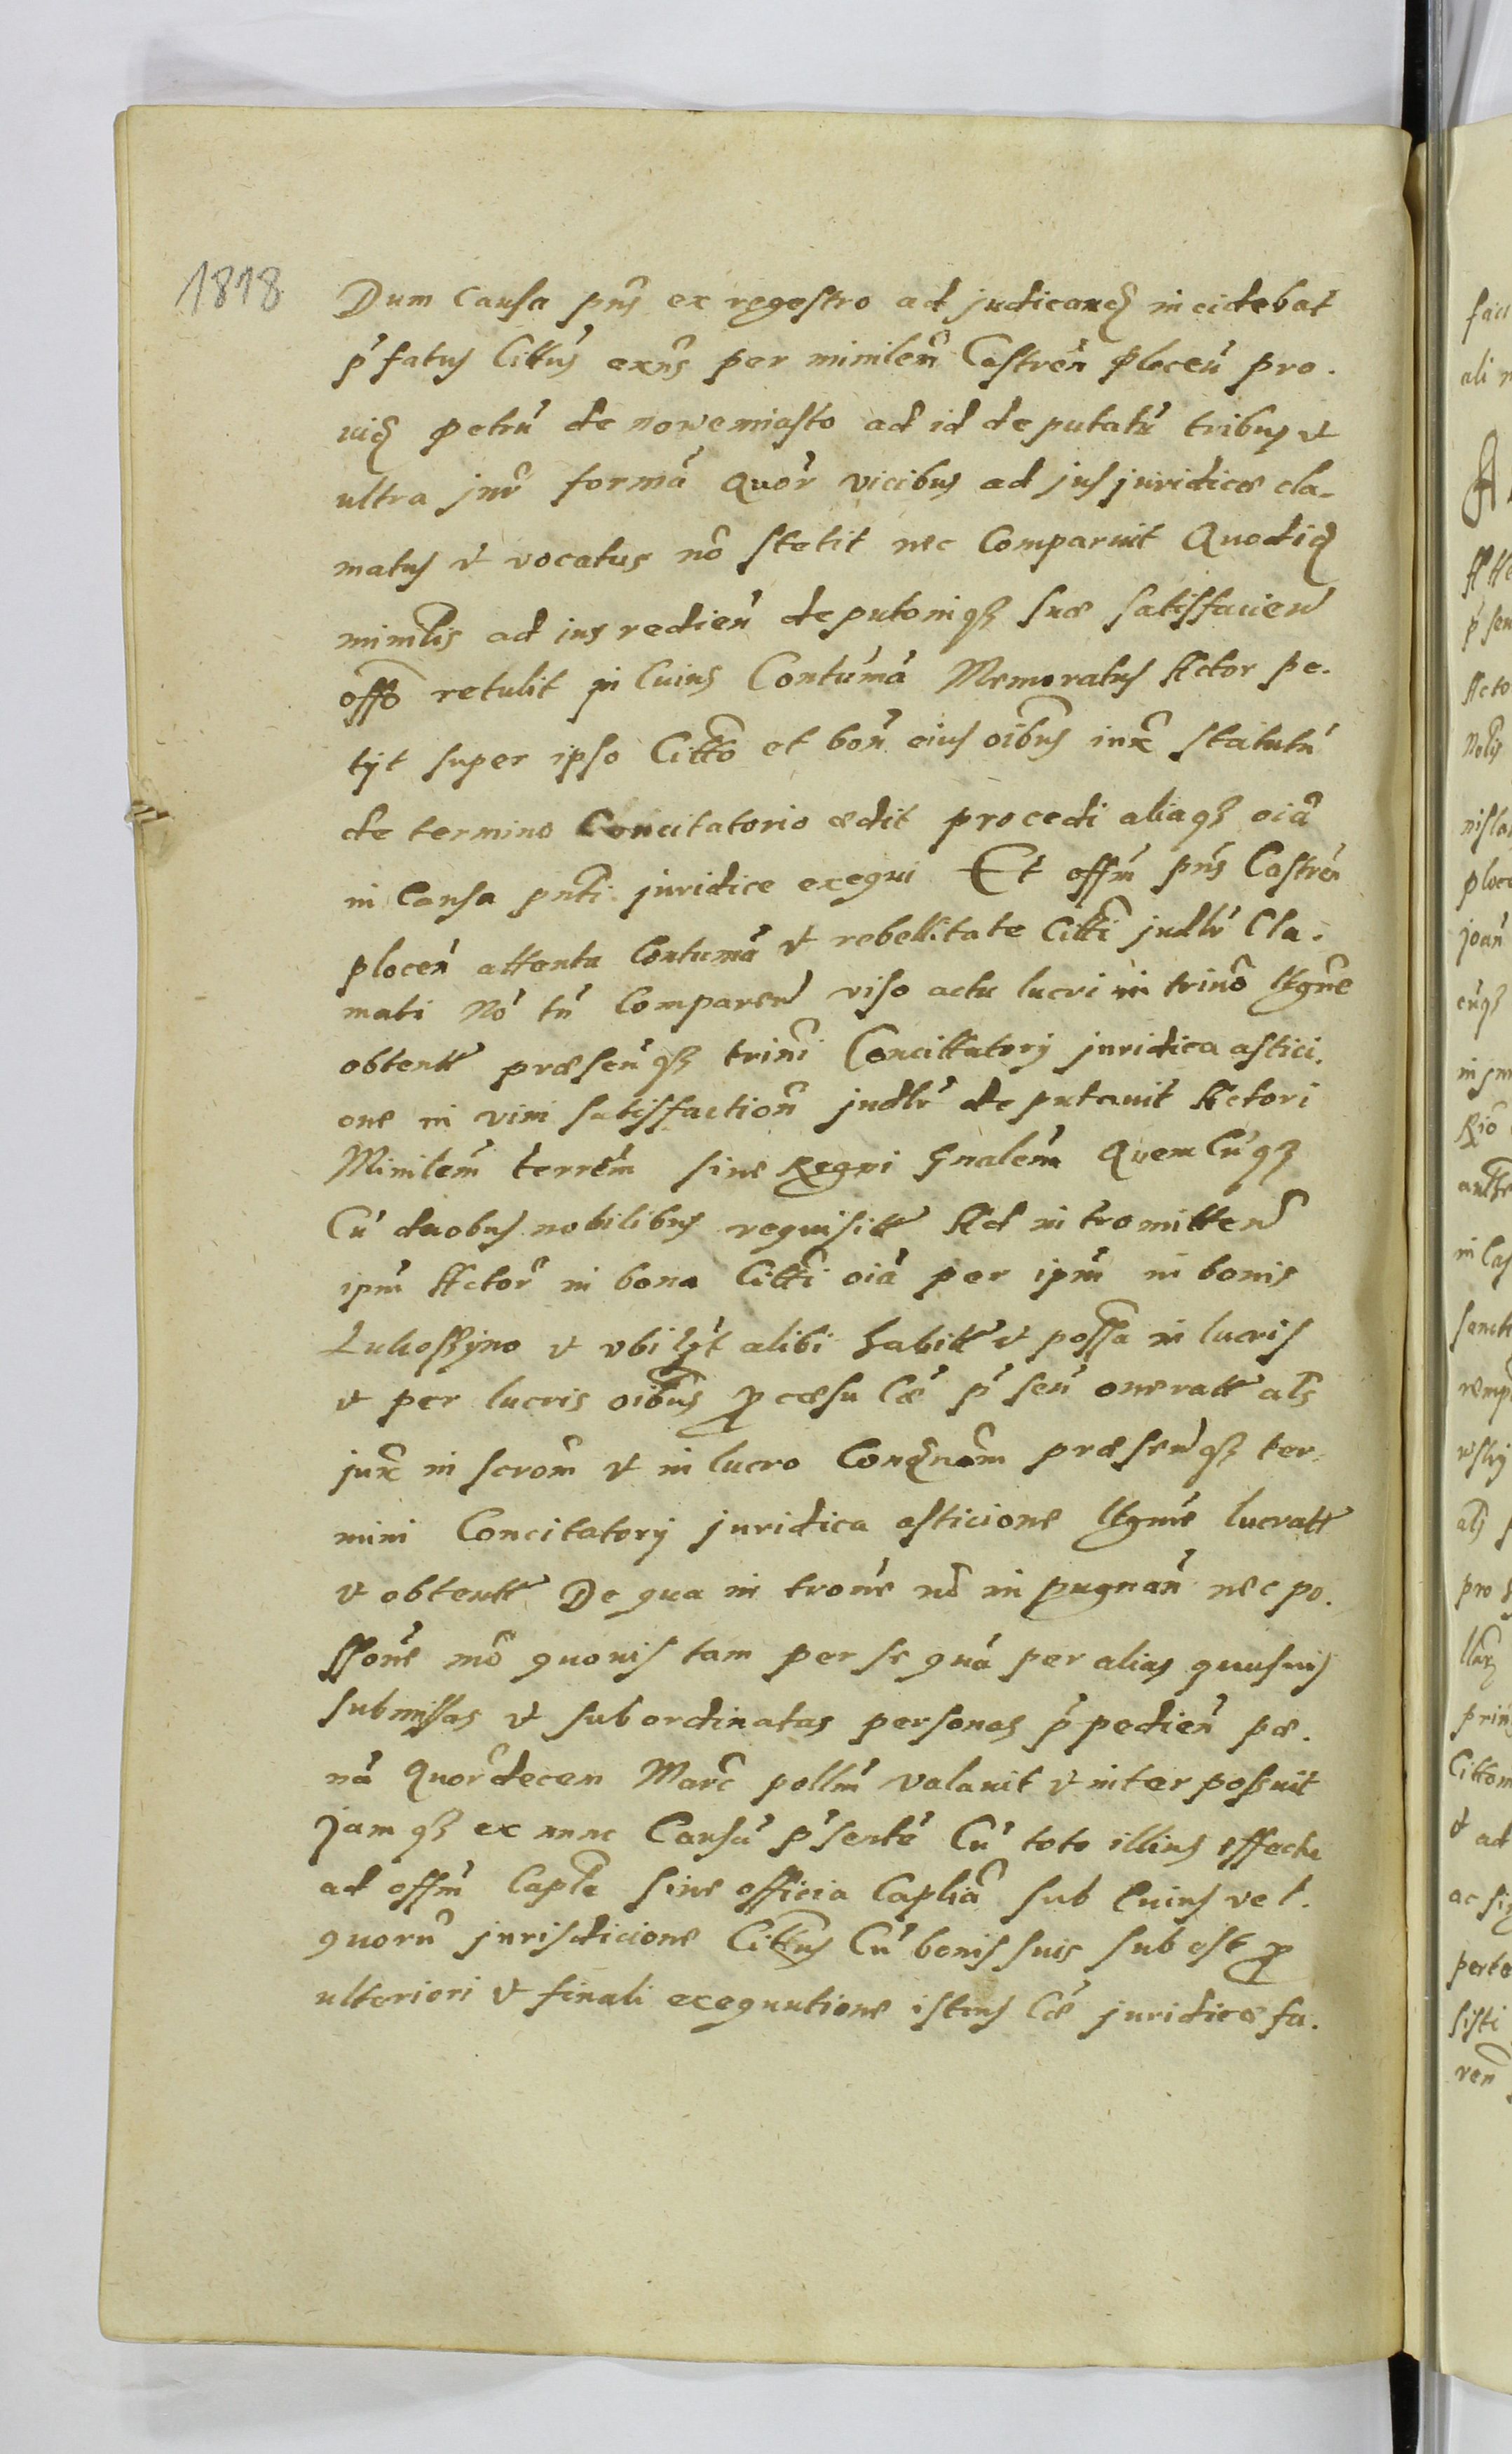 1818
Dum Causa pñs ex regestro ad judicand incidebat
p̃fatus Cittus exñs per minilem̃ Castren̄ Plocen̄ pro.
uid Petrū de nowemiasto ad id deputatū tribus et
ultra jur̄ formā Quor̄ vicibus ad jus juridice cla-
matus et vocatus nõ stetit nec Comparuit Quod id
minlis ad jus redien̄ deputoniqȝ suæ satisfacien̄
offo retulit in Cuius Contumā Memoratus Actor pe.
tyt super ipso Citto et bon̄ eius oibus iux̄ statutū
de termino Concitatorio ædit procedi aliaqȝ oiã
in Causa pnti juridice exequi Et offm̄ pñs Castren̄
plocen̄ attenta Contumā et rebellitate Citti judlr̄ Cla.
mati Nō tn̄ Comparen̄ viso actu lucri in trino ttgne
obtentt præsen̄qȝ trini Concittatorij juridica astici.
one in vim satisfaction̄ judlr̄ deputauit Actori
Minilem̄ terrem̄ siue Regni Gnalem̄ Quem Cūqȝ
Cū duobus nobilibus requisitt Ad intromitten̄
ipm̄ Actor̄ in bona Citti oiã per ipm̄ in bonis
et vbi lȝt alibi habitt et possa in lucris
et per lucris oibus p̱ cæsu Cæ p̃sen̄ oneratt als
jux̄ in scrom̄ et in lucro Condnom̄ præsen̄qȝ ter-
mini Concitatorij juridica asticione ttgne lucratt
et obtentt De qua introne nõ inpugnan̄ nec po.
ssone mõ quouis tam per se quā per alias quasuis
submissas et subordinatas personas p̃pedien̄ pæ.
nā Quor̄decem Marc pollm̄ valauit et interpossuit
Jamqȝ ex nunc Causā p̃sentē Cū toto illius effectu
ad offm̄ Caple siue officia Caplia sub Cuius vel.
quorū jurisdicione Cittus Cū bonis suis subest p̱
ulteriori et finali exequutione istius Cæ juridicæ fa.